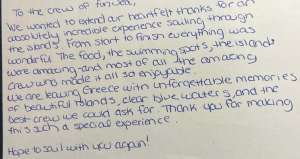 To the crew of Funsea,
We wanted to extend our heartfelt thanks for an
absolutely incredible experience sailing through
the islands. From start to finish everything was
wonderful. The food, the swimming spots, the islands
were amazing and most of all the amazing
crew who made it all so enjoyable.
We are leaving Greece with unforgettable memories
of beautiful islands, clear blue waters, and the
best crew we could ask for. Thank you for making
this such a special experience.
Hope to sail with you again!